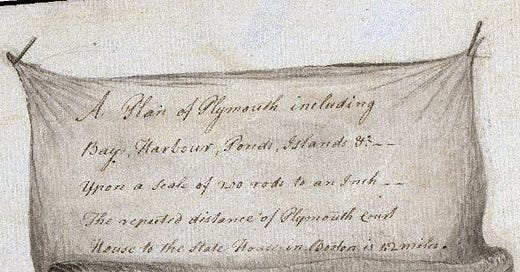 A Plan of Plymouth including
Bays, Harbour, Ponds, Islands &c--
Upon a Scale of 200 rods to an Inch--
The reputed distance of Plymouth Court
House to the State House in Boston is 42 miles.